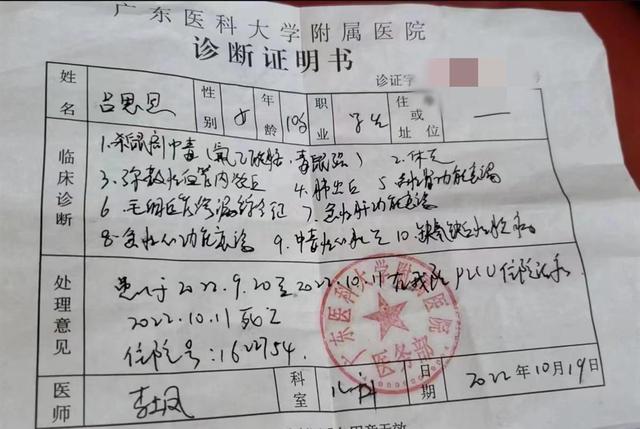 广东医科大学附属医院
诊断证明书
诊证字 号
姓名 吕思恩 性别 女 年龄 10岁 职业 学生 住址或单位 —
临床诊断 1.杀鼠剂中毒(氟乙酰胺、毒鼠强) 2.休克
3.弥散性血管内凝血 4.肺出血 5.急性肾功能衰竭
6.毛细血管渗漏综合征 7.急性肝功能衰竭
8.急性心功能衰竭 9.中毒性心肌炎 10.缺氧缺血性脑病
处理意见 患儿于2022.9.20至2022.10.11在我院PICU住院治疗
2022.10.11死亡
住院号:1622754.
广东医科大学附属医院
医务部
医师 科室 儿科 日期 2022年10月19日
章无效